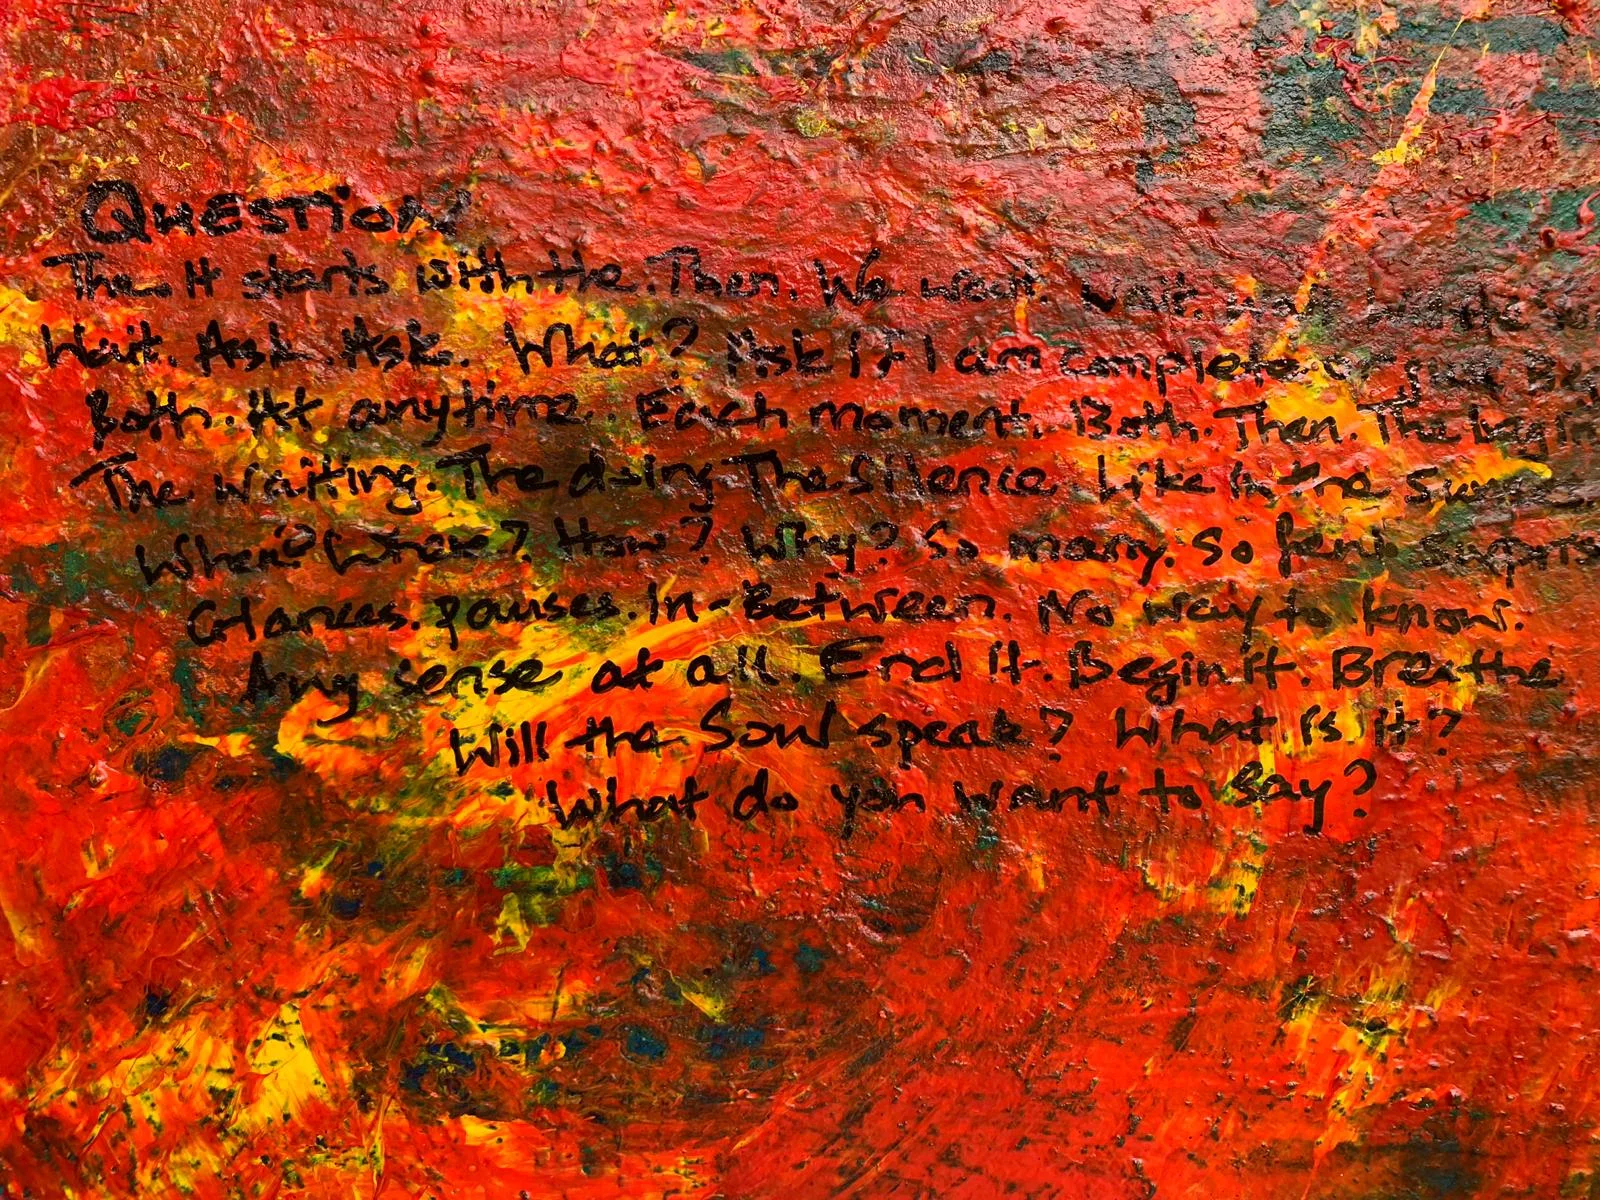 QUESTION
The. It starts with the. Then. We wait. Wait.
Wait. Ask. Ask. What? Ask if I am complete or just
Both. At anytime. Each moment. Both. Then. The
The waiting. The doing. The silence. Like in the
When? Where? How? Why? So many. So few.
Glances. pauses. In-Between. No way to know.
Any sense at all. End it. Begin it. Breathe
Will the Soul speak? What is it?
What do you want to say?